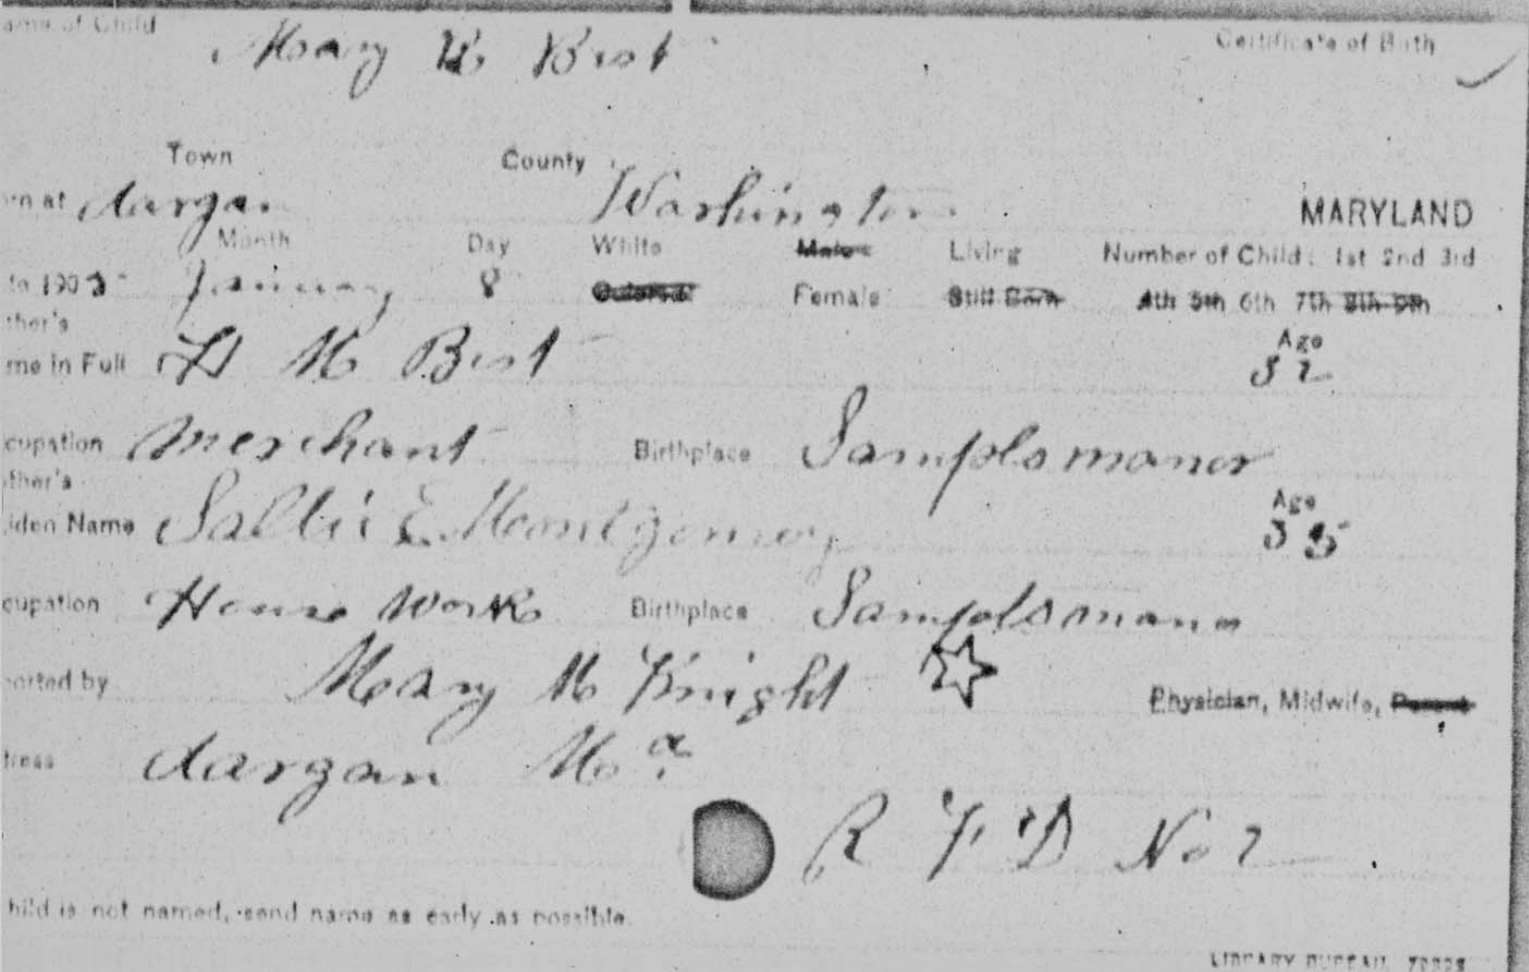 ame of Child Mary Best Certificate of Birth
Town County
rn at dargan Washington MARYLAND
Month Day White Male Living Number of Child: 1st 2nd 3rd
te 190 January 8 Colored Female Still Born 4th 5th 6th 7th 8th 9th
ther's
me in Full H M Best Age 32
cupation merchant Birthplace Samplsmanor
ther's
iden Name Sallie E. Montgomery Age 35
cupation House Work Birthplace Samplsmanor
ported by Mary M Knight Physician, Midwife, Parent
dress dargan Md
R F D No 2
hild is not named, send name as early as possible.
LIBRARY BUREAU